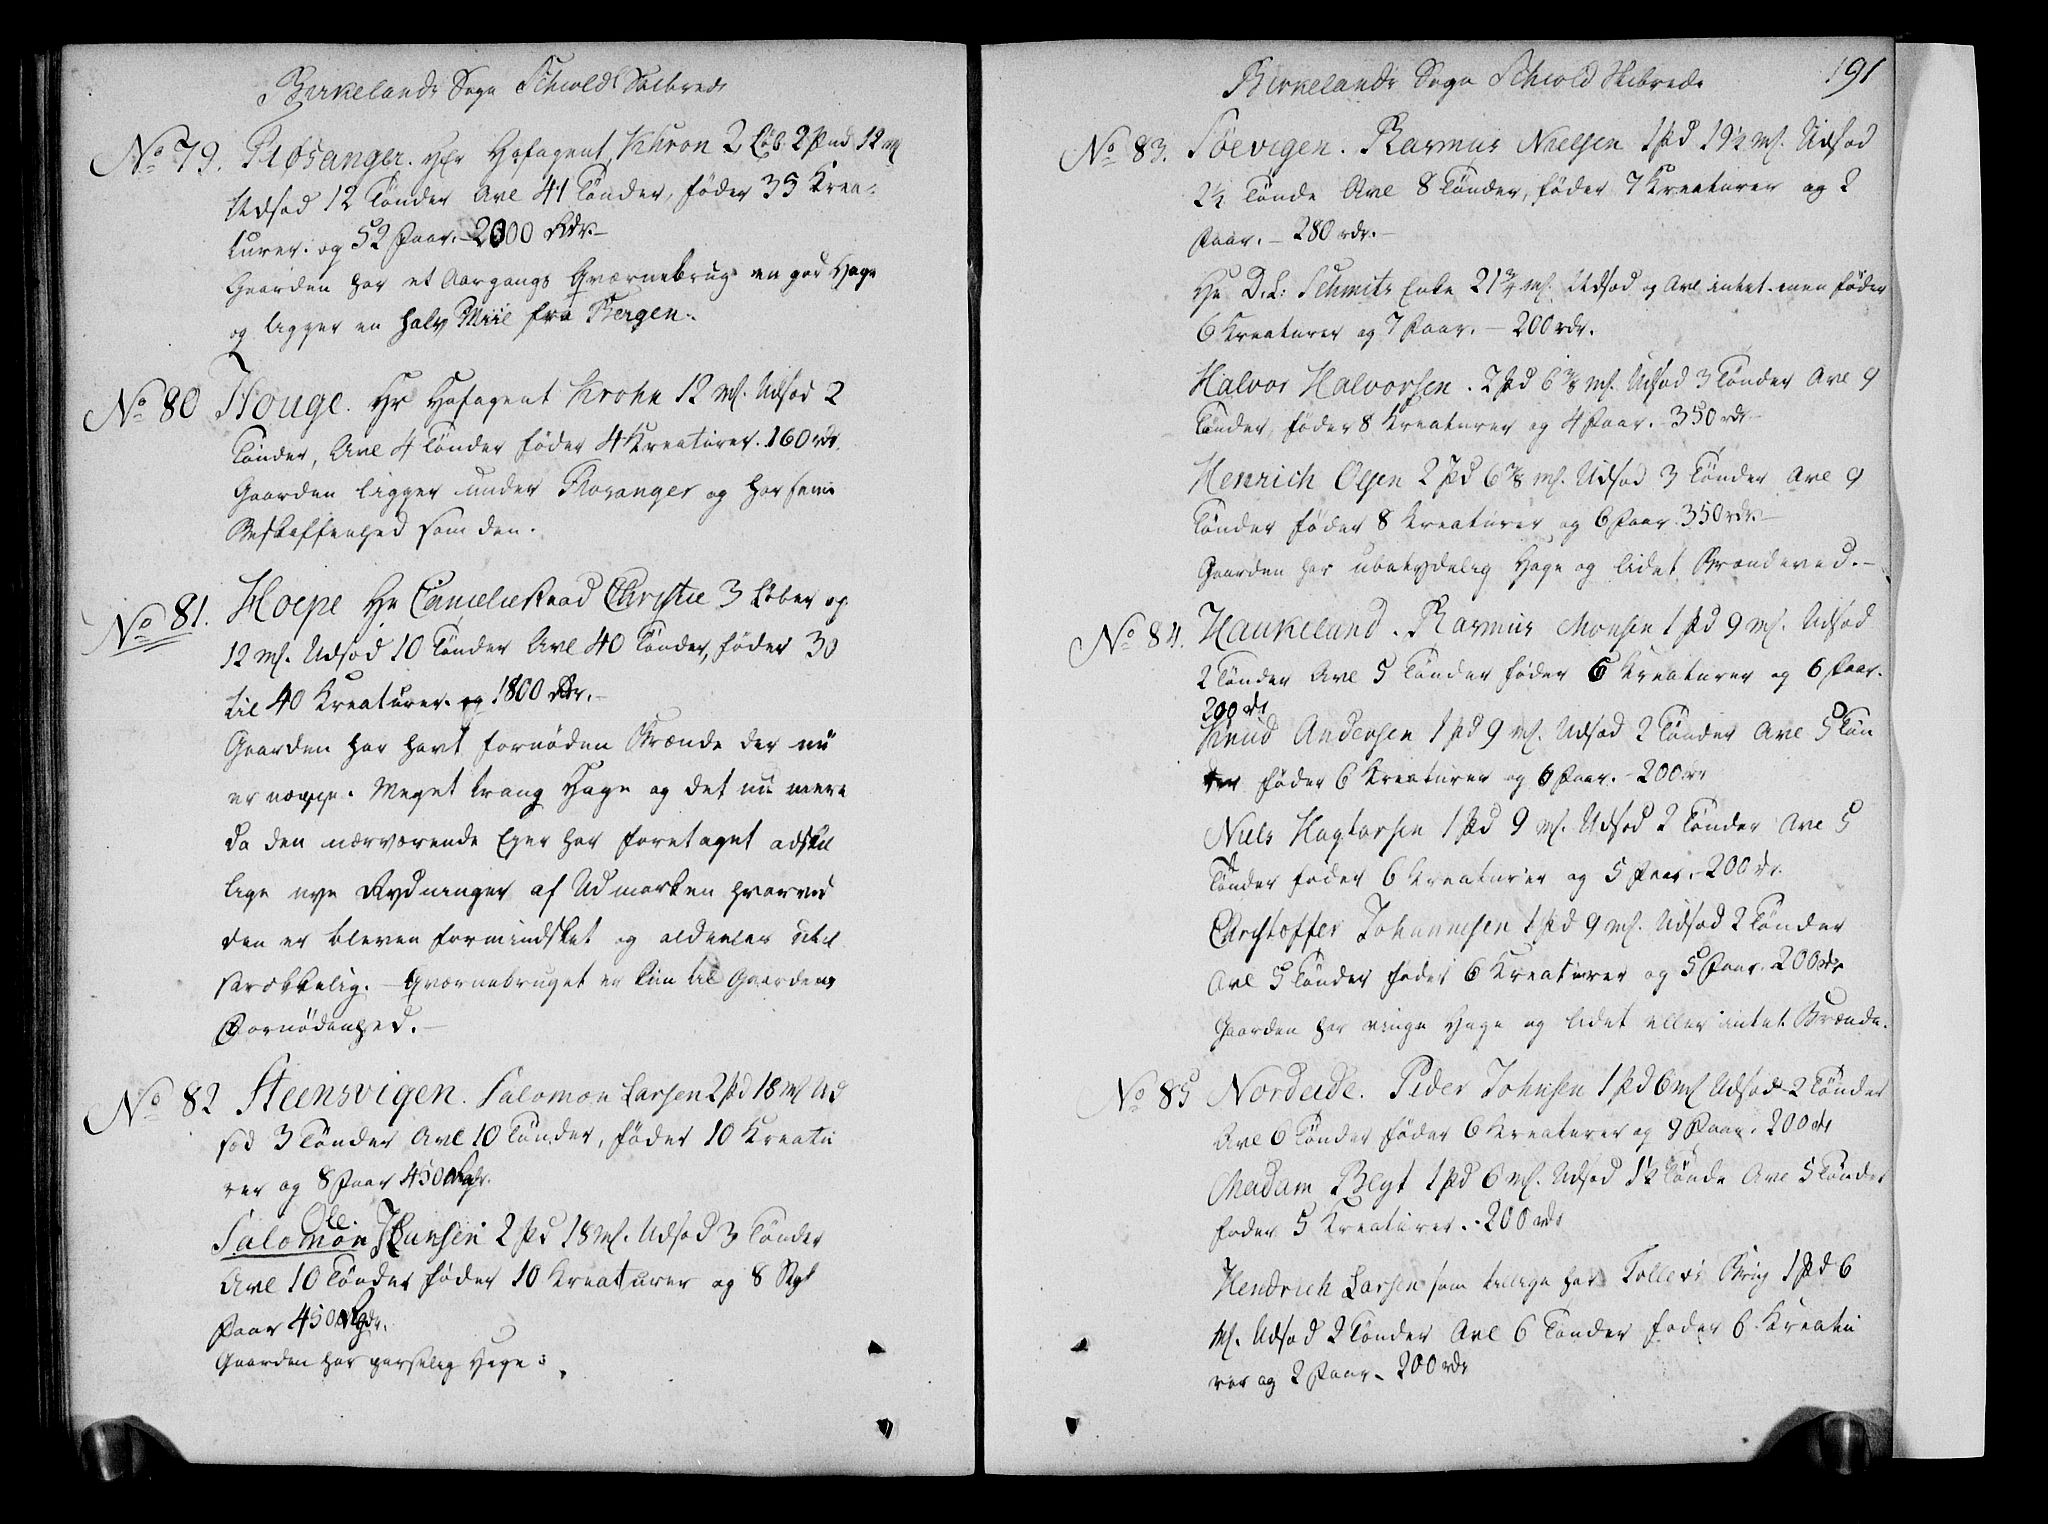 Birkelands Sogn Schiolds Skibrede
No 79. Røsanger. Hr Hofagent Khron 2 Løb 2 Pund 12 ml
Udsød 12 Tønder Avl 41 Tønder, føder 35 Krea-
turer. og 52 Faar. 2000 Rdr.-
Gaarden har et Aargangs Qværnebrug en god Hage
og ligger en halv Miil fra Bergen.
No 80 Houge. Hr Hofagent Krohn 12 ml. Udsød 2
Tønder, Avl 4 Tønder føder 4 Kreaturer. 160 rdr.
Gaarden ligger under Røsanger og har samme
Beskaffenhed som den.
No 81. Hoepe Hr Cancelieraad Christie 3 Løber og
12 ml. Udsød 10 Tønder Avl 40 Tønder, føder 30
til 40 Kreaturer. og 1800 Rdr.-
Gaarden har havt fornøden Brænde der nu
er næppe. Meget trang Hage og det nu mere
da den nærværende Ejer har foretaget adskil
lige nye Rydninger af Udmarken hvorved
den er bleven formindsket og aldeeles util
strækkelig. - Qværnebruget er kun til Gaardens
Fornødenhed.-
No 82 Steensvigen. Salomon Larsen 2 pd 18 ml Ud
sød 3 Tønder Avl 10 Tønder, føder 10 Kreatu
rer og 8 Faar 450 Rdr.
Ole
Salomon Hansen 2 pd 18 ml. Udsød 3 Tønder
Avl 10 Tønder føder 10 Kreaturer og 8 Stk
Faar 450 Rdr.
Gaarden har maadelig Hage
Birkelands Sogn Schiold Skibrede 191
No 83. Søevigen. Rasmus Nielsen 1 pd 19½ ml. Udsød
2½ Tønde Avl 8 Tønder, føder 7 Kreaturer og 2
Faar. - 280 rdr.-
Hr D. L: Schmits Enke 21¾ ml. Udsød og Avl intet men føder
6 Kreaturer og 7 Faar. - 200 rdr.
Halvor Halvorsen. 2 pd 6⅜ ml. Udsød 3 Tønder Avl 9
Tønder føder 8 Kreaturer og 4 Faar. 350 rdr
Henrich Olsen 2 pd 6⅜ ml. Udsød 3 Tønder Avl 9
Tønder føder 8 Kreaturer og 6 Faar. 350 rdr.-
Gaarden har ubetydelig Hage og lidet Brændeved.-
No 84. Haukeland. Rasmus Monsen 1 pd 9 ml. Udsød
2 Tønder Avl 5 Tønder føder 6 Kreaturer og 6 Faar.
200 rdr
Knud Andersen 1 pd 9 ml. Udsød 2 Tønder Avl 5 Tøn
der føder 6 Kreaturer og 6 Faar. - 200 rdr
Niels Hagtorsen 1 pd 9 ml. Udsød 2 Tønder Avl 5
Tønder føder 6 Kreaturer og 5 Faar. - 200 rdr.
Christoffer Johannesen 1 pd 9 ml. Udsød 2 Tønder
Avl 5 Tønder føder 6 Kreaturer og 5 Faar. 200 rdr
Gaarden har ringe Hage og lidet eller intet Brænde.
No 85 Nordeide. Peder Johnsen 1 pd 6 ml Udsød 2 Tønder
Avl 6 Tønder føder 6 Kreaturer og 9 Faar. 200 rdr
Madam Blyt 1 pd 6 ml. Udsød 1½ Tønde Avl 5 Tønder
føder 5 Kreaturer. - 200 rdr
Hendrich Larsen som tillige har Tollevs Brug 1 pd 6
ml. Udsød 2 Tønder Avl 6 Tønder føder 6 Kreatu
rer og 2 Faar. 200 rdr